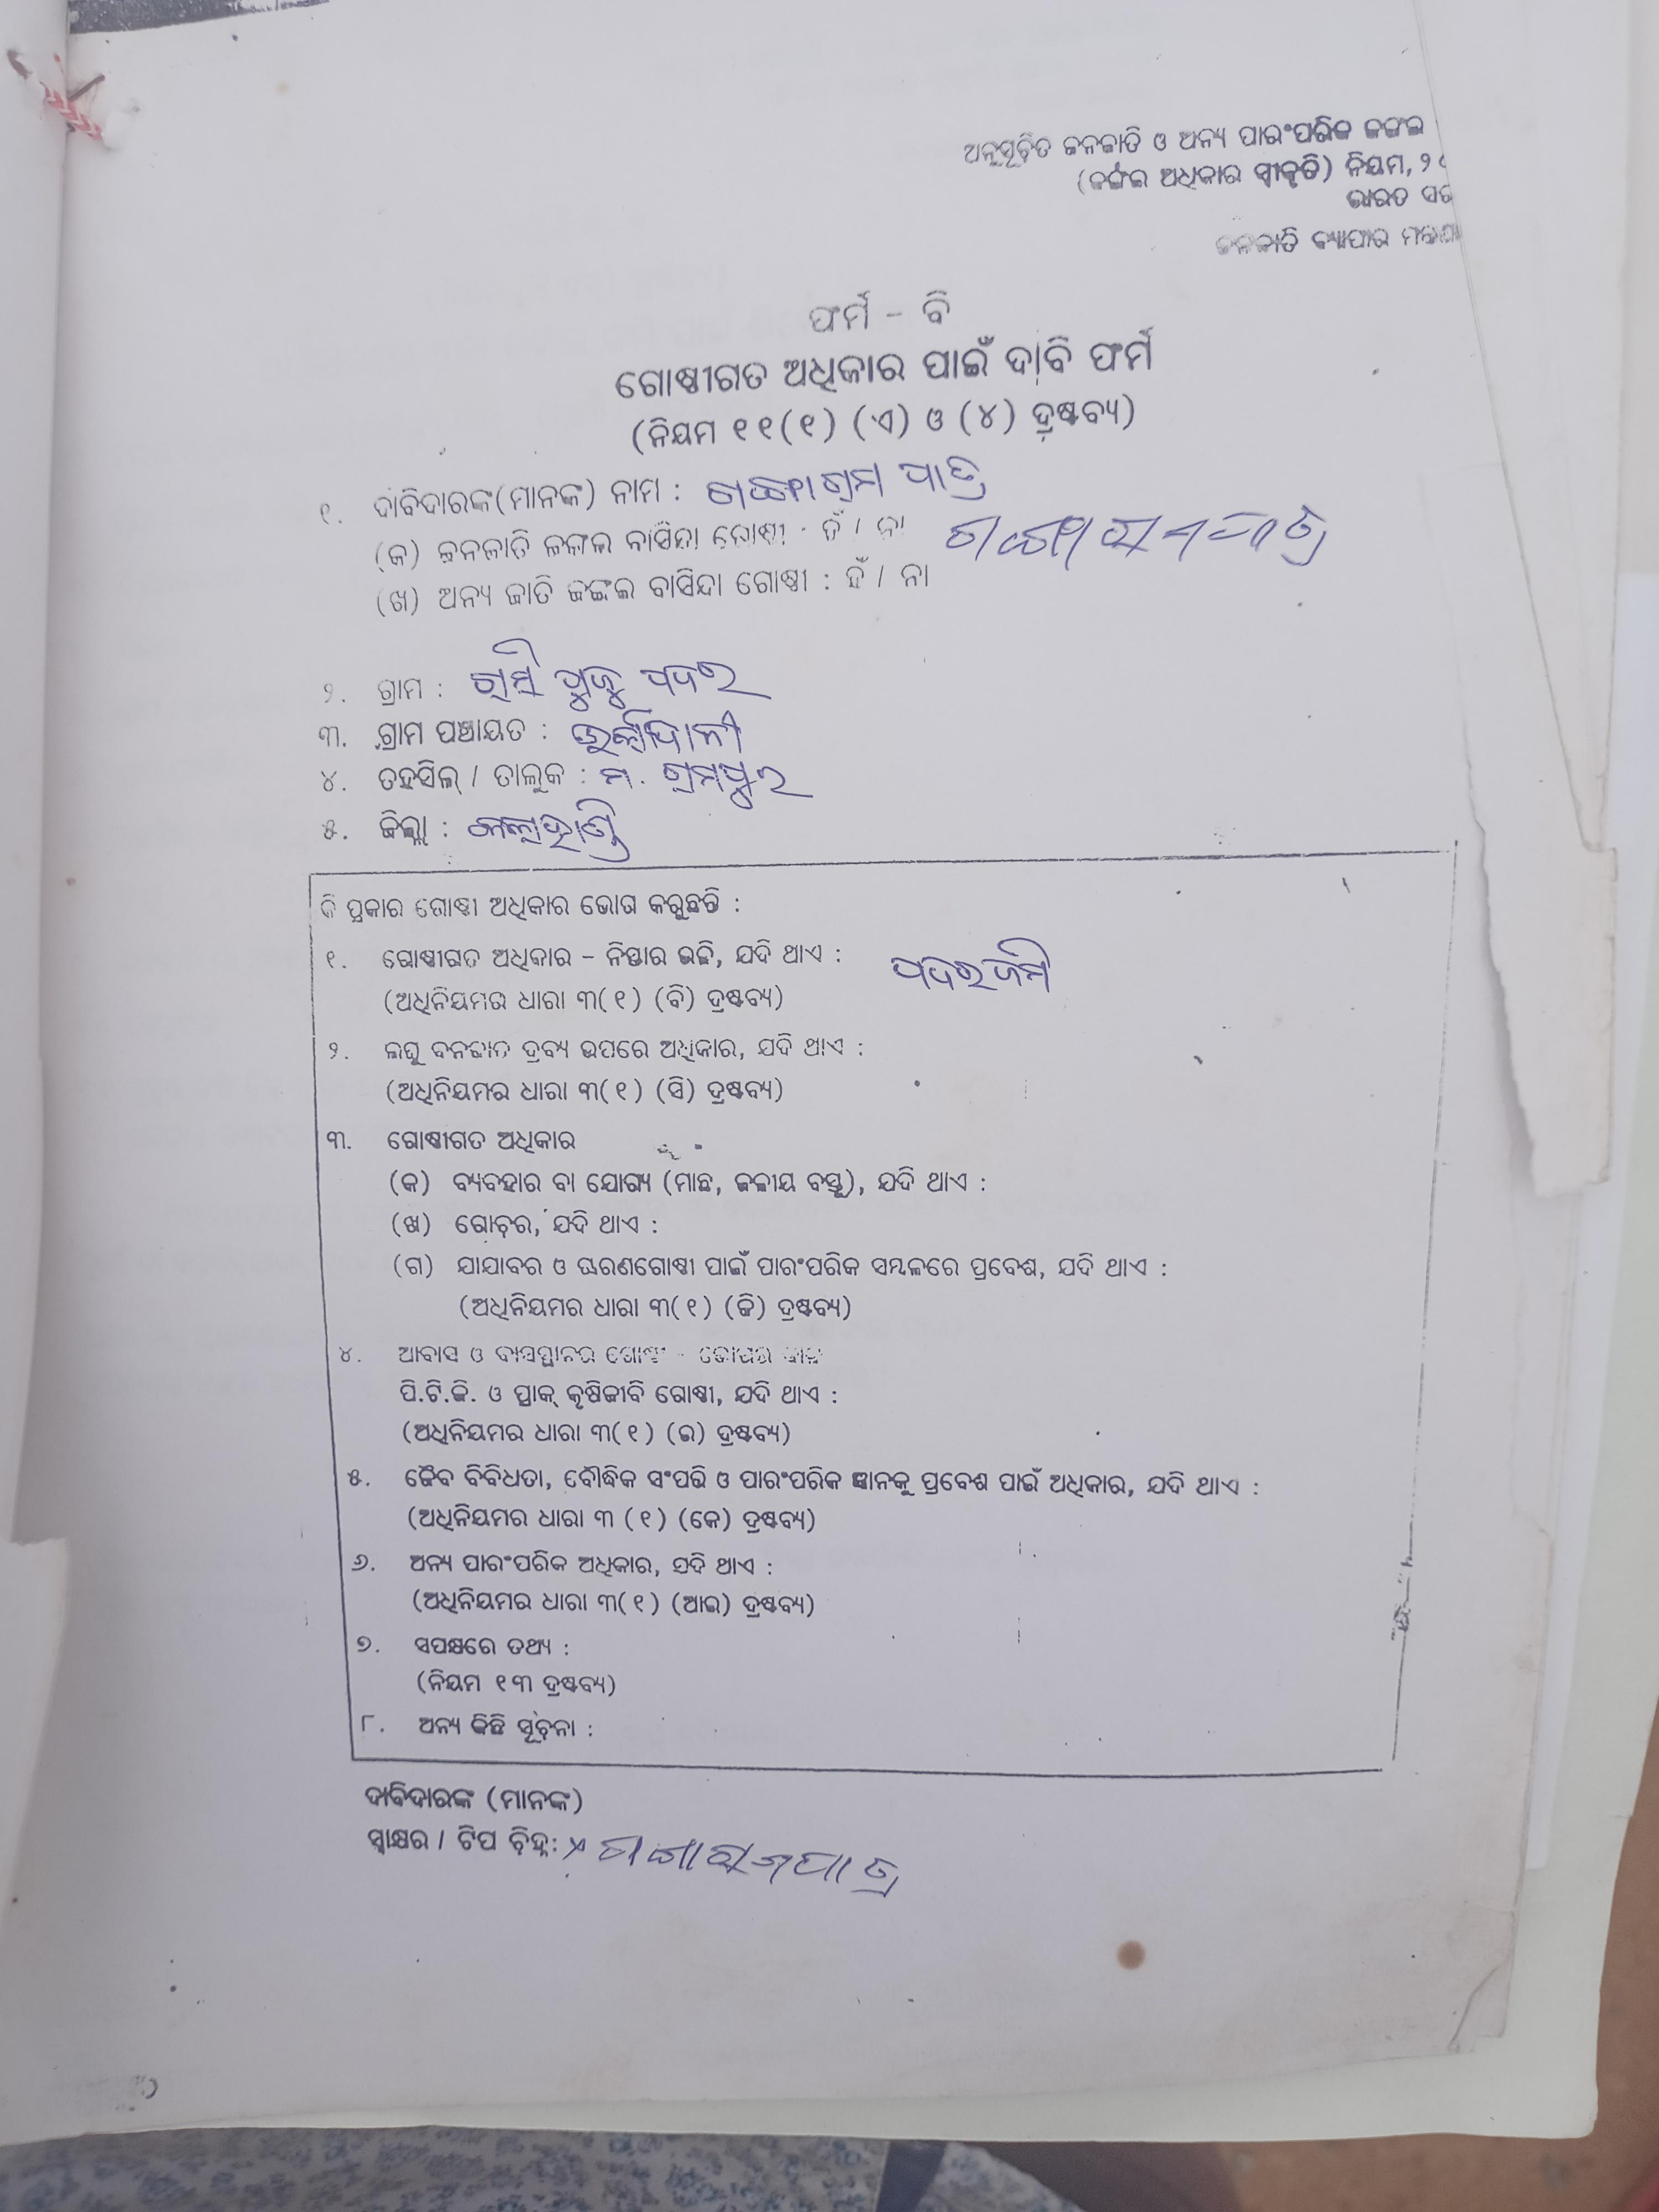 ଅନୁସୂଚିତ ଜନଜାତି ଓ ଅନ୍ୟ ପାରଂପରିକ ଜଙ୍ଗଲ
(ଜଙ୍ଗଲ ଅଧିକାର ସ୍ୱୀକୃତି) ନିୟମ, ୨
ଭାରତ ସର
ଜନଜାତି ବ୍ୟାପାର
ଫର୍ମ - ବି
ଗୋଷ୍ଠୀଗତ ଅଧିକାର ପାଇଁ ଦାବି ଫର୍ମ
(ନିୟମ ୧୧(୧) (ଏ) ଓ (୪) ଦ୍ରଷ୍ଟବ୍ୟ)
୧. ଦାବିଦାରଙ୍କ(ମାନଙ୍କ) ନାମ : ପାତ୍ର
(କ) ଜନଜାତି ଜଙ୍ଗଲ ବାସିନ୍ଦା ଗୋଷ୍ଠୀ : ହଁ / ନା
(ଖ) ଅନ୍ୟ ଜାତି ଜଙ୍ଗଲ ବାସିନ୍ଦା ଗୋଷ୍ଠୀ : ହଁ / ନା
୨. ଗ୍ରାମ : ପଦର
୩. ଗ୍ରାମ ପଞ୍ଚାୟତ :
୪. ତହସିଲ୍ / ତାଲୁକ : ମ. ରାମପୁର
୫. ଜିଲ୍ଲା : କଳାହାଣ୍ଡି
କି ପ୍ରକାର ଗୋଷ୍ଠୀ ଅଧିକାର ଭୋଗ କରୁଛନ୍ତି :
୧. ଗୋଷ୍ଠୀଗତ ଅଧିକାର - ନିସ୍ତାର ଭଳି, ଯଦି ଥାଏ : ପଦରଜମି
(ଅଧିନିୟମର ଧାରା ୩(୧) (ବି) ଦ୍ରଷ୍ଟବ୍ୟ)
୨. ଲଘୁ ବନଜାତ ଦ୍ରବ୍ୟ ଉପରେ ଅଧିକାର, ଯଦି ଥାଏ :
(ଅଧିନିୟମର ଧାରା ୩(୧) (ସି) ଦ୍ରଷ୍ଟବ୍ୟ)
୩. ଗୋଷ୍ଠୀଗତ ଅଧିକାର
(କ) ବ୍ୟବହାର ବା ଯୋଗ୍ୟ (ମାଛ, ଜଳୀୟ ବସ୍ତୁ), ଯଦି ଥାଏ :
(ଖ) ଗୋଚର, ଯଦି ଥାଏ :
(ଗ) ଯାଯାବର ଓ ଚାରଣଗୋଷ୍ଠୀ ପାଇଁ ପାରଂପରିକ ସମ୍ବଳରେ ପ୍ରବେଶ, ଯଦି ଥାଏ :
(ଅଧିନିୟମର ଧାରା ୩(୧) (ଜି) ଦ୍ରଷ୍ଟବ୍ୟ)
୪. ଆବାସ ଓ ବାସସ୍ଥାନର ଗୋଷ୍ଠୀ -
ପି.ଟି.ଜି. ଓ ପ୍ରାକ୍ କୃଷିଜୀବି ଗୋଷ୍ଠୀ, ଯଦି ଥାଏ :
(ଅଧିନିୟମର ଧାରା ୩(୧) (ଇ) ଦ୍ରଷ୍ଟବ୍ୟ)
୫. ଜୈବ ବିବିଧତା, ବୌଦ୍ଧିକ ସଂପତ୍ତି ଓ ପାରଂପରିକ ଜ୍ଞାନକୁ ପ୍ରବେଶ ପାଇଁ ଅଧିକାର, ଯଦି ଥାଏ :
(ଅଧିନିୟମର ଧାରା ୩ (୧) (କେ) ଦ୍ରଷ୍ଟବ୍ୟ)
୬. ଅନ୍ୟ ପାରଂପରିକ ଅଧିକାର, ଯଦି ଥାଏ :
(ଅଧିନିୟମର ଧାରା ୩(୧) (ଆଇ) ଦ୍ରଷ୍ଟବ୍ୟ)
୭. ସପକ୍ଷରେ ତଥ୍ୟ :
(ନିୟମ ୧୩ ଦ୍ରଷ୍ଟବ୍ୟ)
୮. ଅନ୍ୟ କିଛି ସୂଚନା :
ଦାବିଦାରଙ୍କ (ମାନଙ୍କ)
ସ୍ୱାକ୍ଷର / ଟିପ ଚିହ୍ନ: